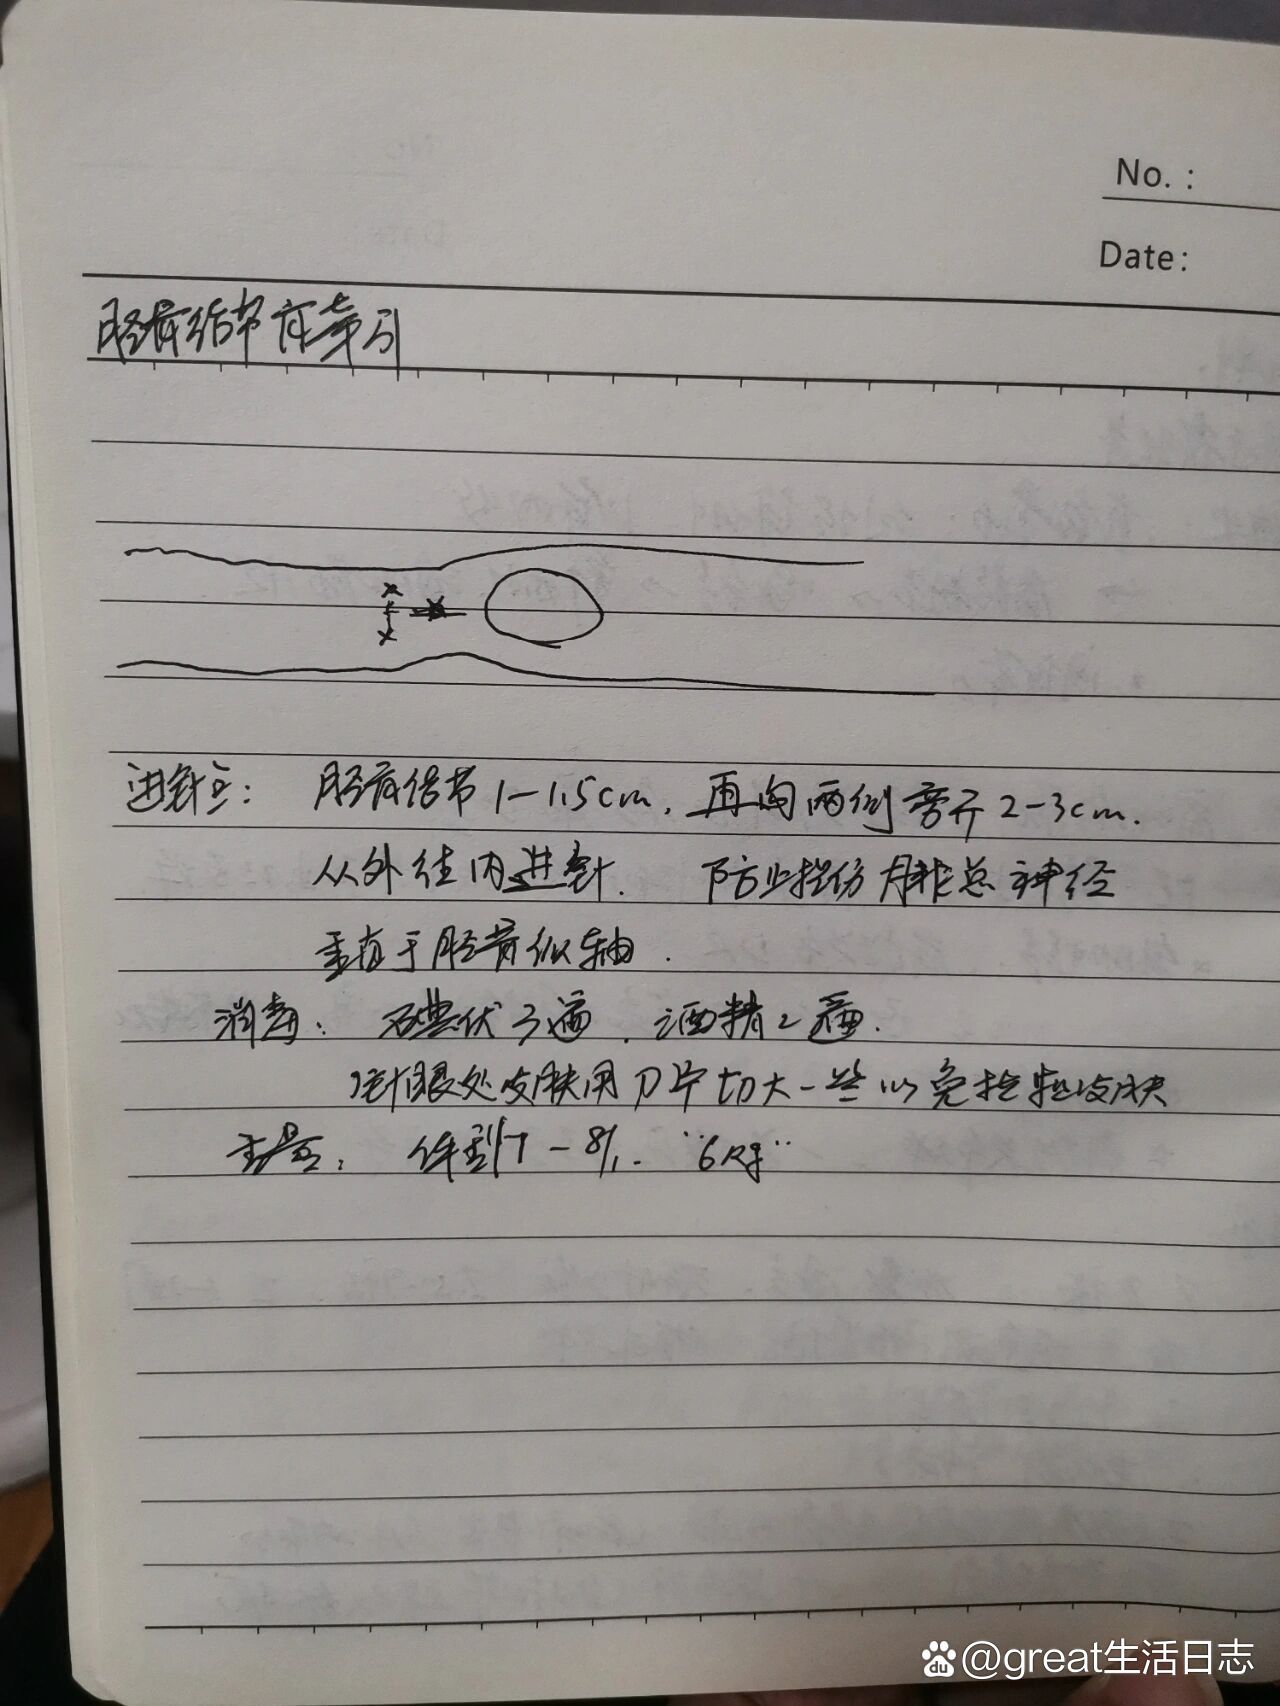 No.:
Date:
胫骨结节骨牵引
进针点: 胫骨结节1-1.5cm, 再向两侧旁开2-3cm.
从外往内进针. 防止损伤腓总神经
垂直于胫骨纵轴.
消毒: 碘伏3遍, 酒精2遍.
针眼处皮肤用刀片切大一些以免拉扯皮肤
重量: 体重1/7-8/1. "6kg"
@great生活日志